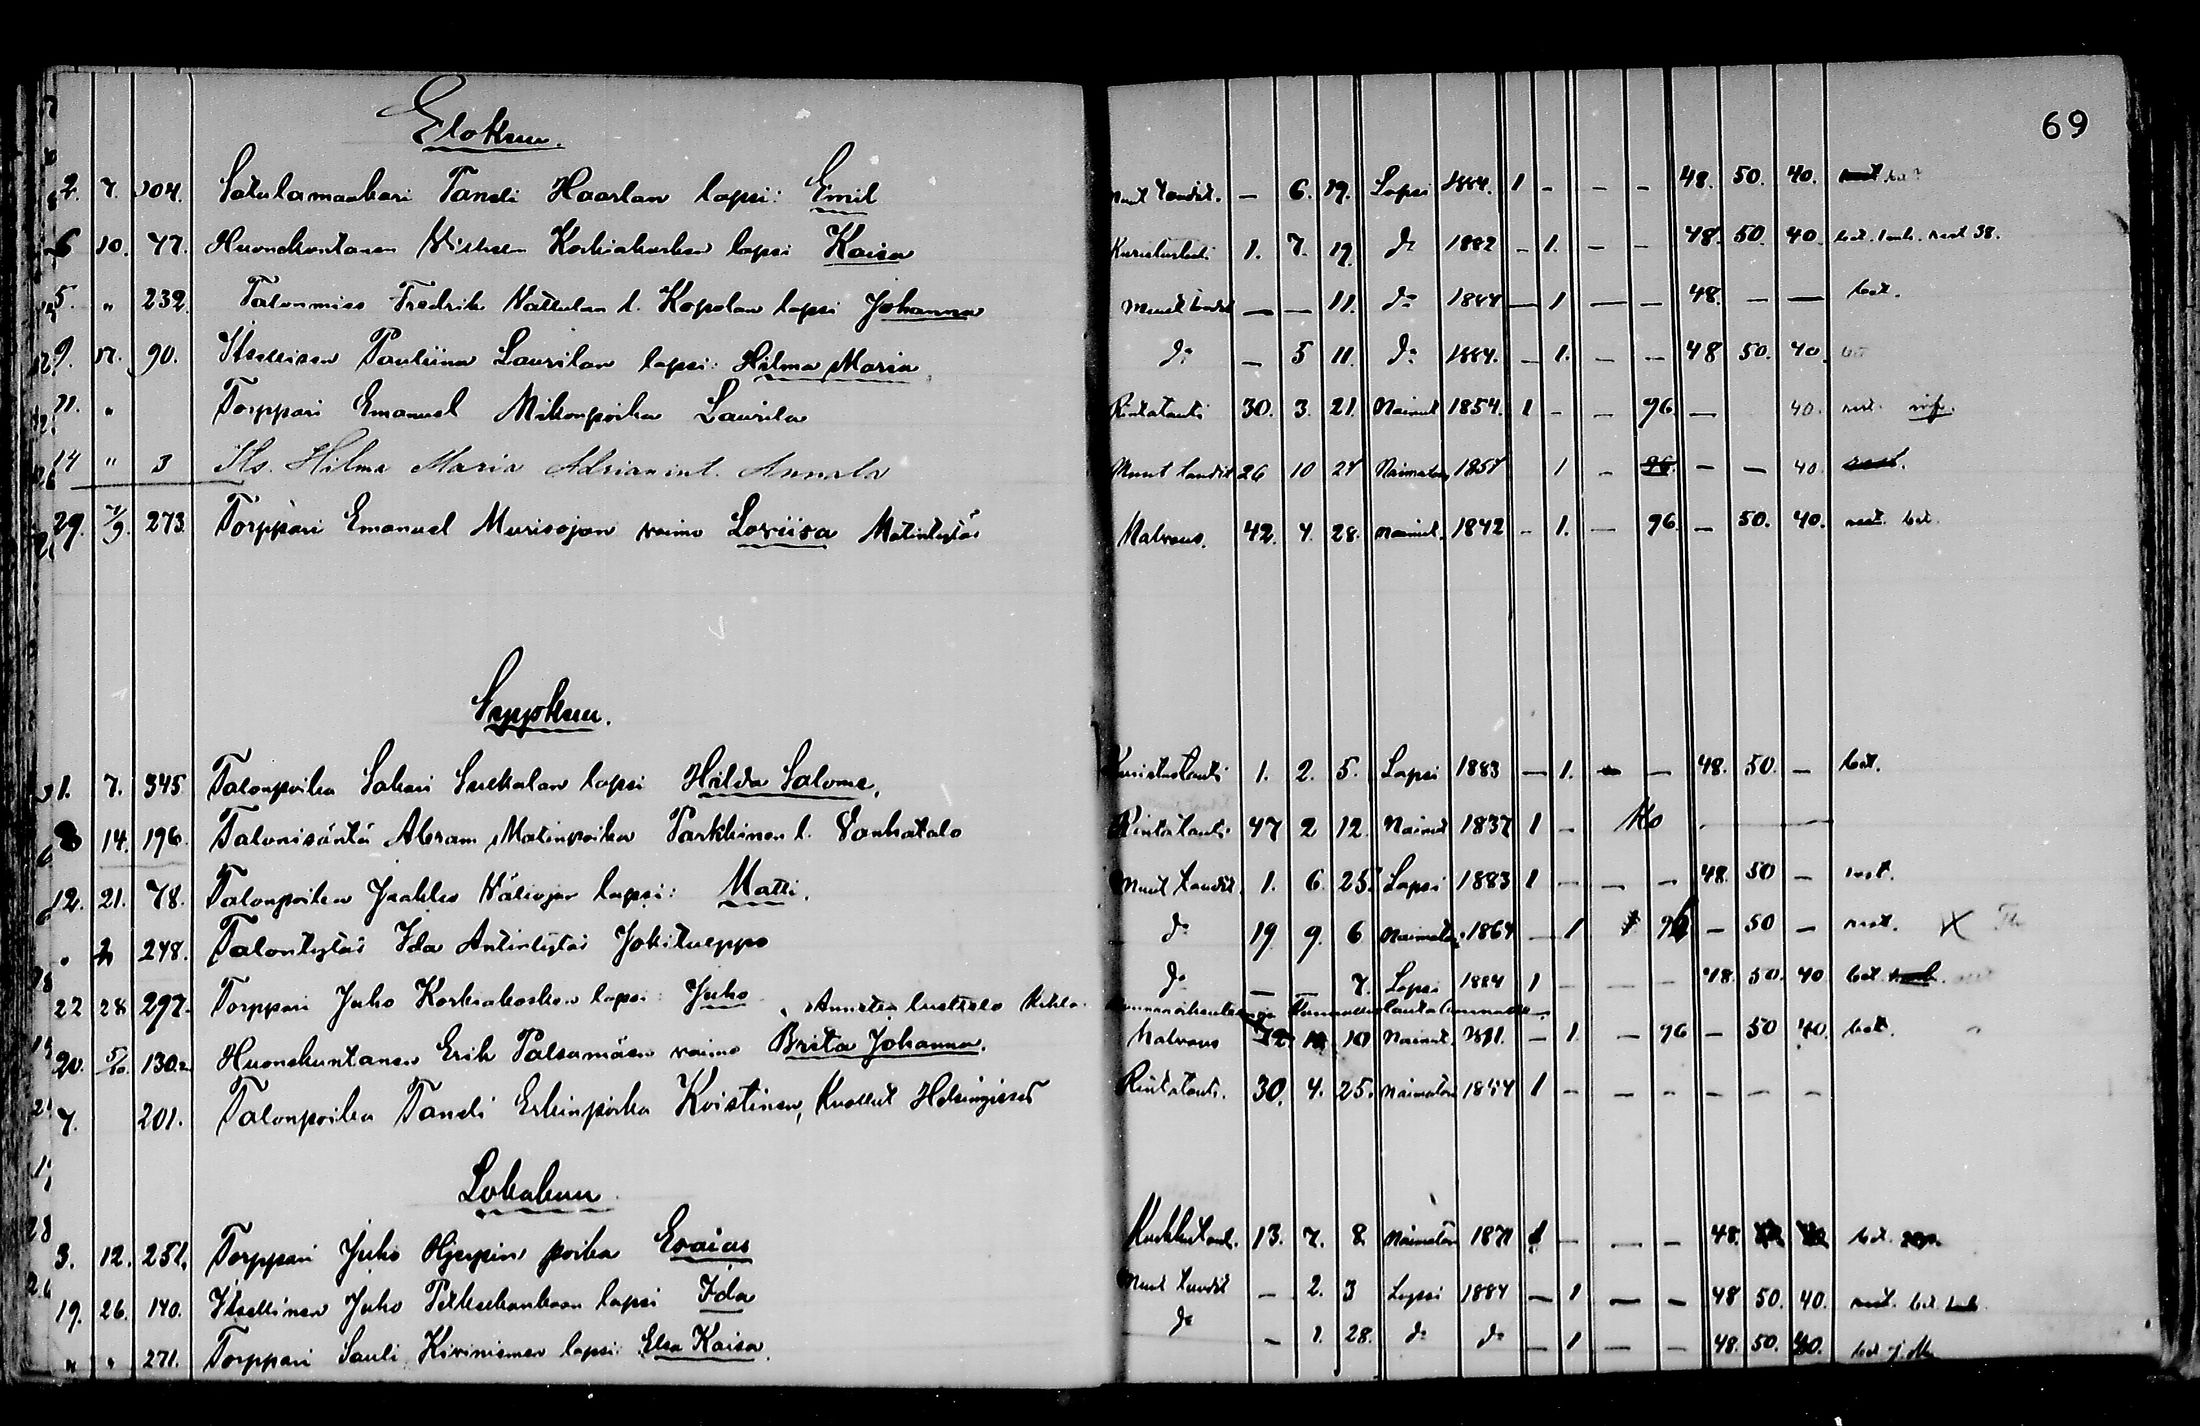 69
Elokuu.
2. 7. 304. Satulamaakari Tandi Haarlan lapsi: Emil Muut taudit. — 6. 19. Lapsi 1884. 1 - - - 48. 50. 40.
6 10. 47. Huonekuntanen Korkiakosken lapsi Kaisa Kuristustauti 1. 7. 19. do 1882 - 1. - - 48. 50. 40. bet. rest 38.
5. " 232. Talonmies Fredrik l. Kopolan lapsi Johanna Muut taudit — — 11. do 1884 — 1 — — 48. — — bet.
9. 17. 90. Itsellisen Pauliina Laurilan lapsi: Hilma Maria. do — 5 11. do 1884. — 1. — — 48 50. 40.
11. " Torppari Emanuel Mikonpoika Laurila Rintatauti 30. 3. 21. Nainut 1854. 1 - - 96 — 40. rest.
14 " 3 Its. Hilma Maria Adriamint. Annala Muut taudit 26 10 27 Naimaton 1857 1 - 96 — — 40.
29. 7/9. 273. Torppari Emanuel Murisojan vaimo Loviisa Matintytär Halvaus. 42. 4. 28. Nainut. 1842 - 1. — 96. — 50. 40. rest. bet.
Syyskuu.
1. 7. 345 Talonpoika Sakari lapsi Hilda Salome. Kuristustauti 1. 2. 5. Lapsi 1883 — 1. — — 48. 50. — bet.
8 14. 196. Talonisäntä Abram Matinpoika Parkkinen l. Vanhatalo Rintatauti 47 2 12. Nainut 1837 1 -
12. 21. 78. Talonpoika Jaakko Väliojan lapsi: Matti. Muut taudit. 1. 6. 25. Lapsi 1883 1 — — — 48. 50 — rest.
" 248. Talontytär Ida Antintytär Jokitulppo do 19 9. 6 Naimaton 1864 — 1 — 50 — rest. X
22 28 297. Torppari Juho Korkiakosken lapsi: Juho do — — 7. Lapsi 1884 1 — — — 48. 50. 40 bet.
20. 5/10. 130. Huonekuntanen Erik Palsamäen vaimo Brita Johanna. Halvaus 10 Nainut. — 1. — 96 — 50 40. bet.
7. 201. Talonpoika Tandi Erkinpoika Koistinen, kuollut Helsingissä Rintatauti. 30. 4. 25. Naimaton 1854 1 - - - - - -
Lokakuu.
3. 12. 251. Torppari Juho Hjerpin poika Esaias 13. 7. 8. Naimaton 1871 1 — — — 48. bet.
19. 26. 140. Itsellinen Juho lapsi Ida Muut taudit — 2. 3 Lapsi 1884 — 1 — — 48 50. 40. rest. bet.
" " 271. Torppari Sauli Kiviniemen lapsi: Elsa Kaisa. do — 1. 28. do do — 1 — — 48. 50. 40. bet